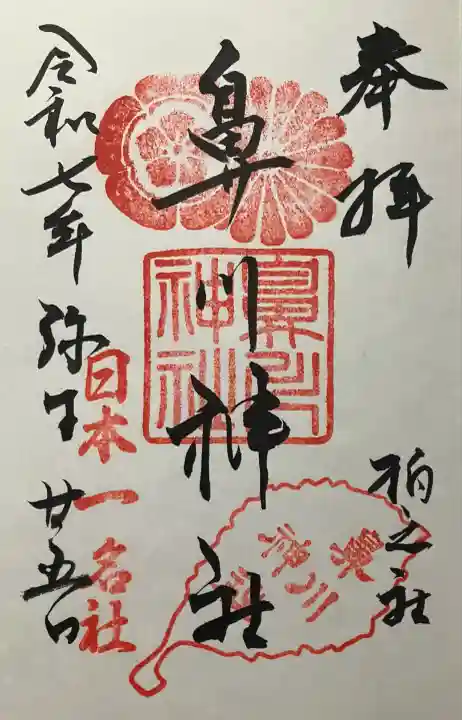 奉拝
柏之社
鼻川神社
鼻川
神社
令和七年弥生廿五日
日本一名社